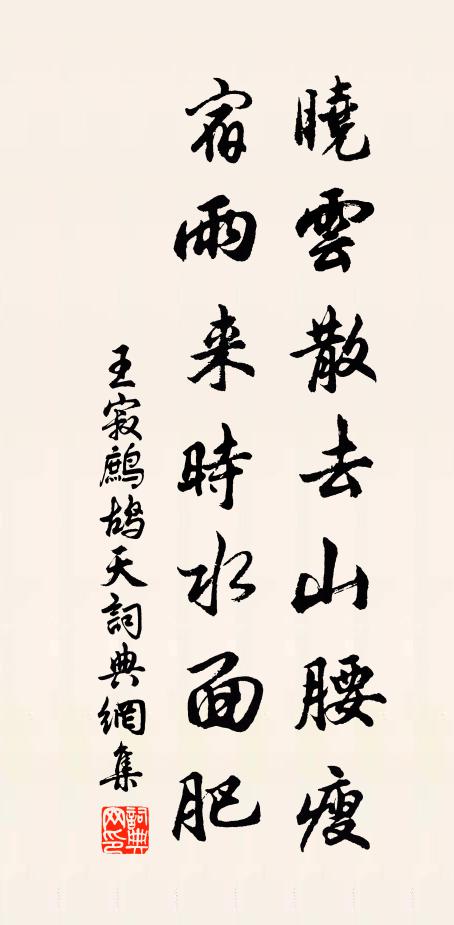 曉雲散去山腰瘦
宿雨来時水面肥
王寂鷓鴣天詞典網集
詞典網印